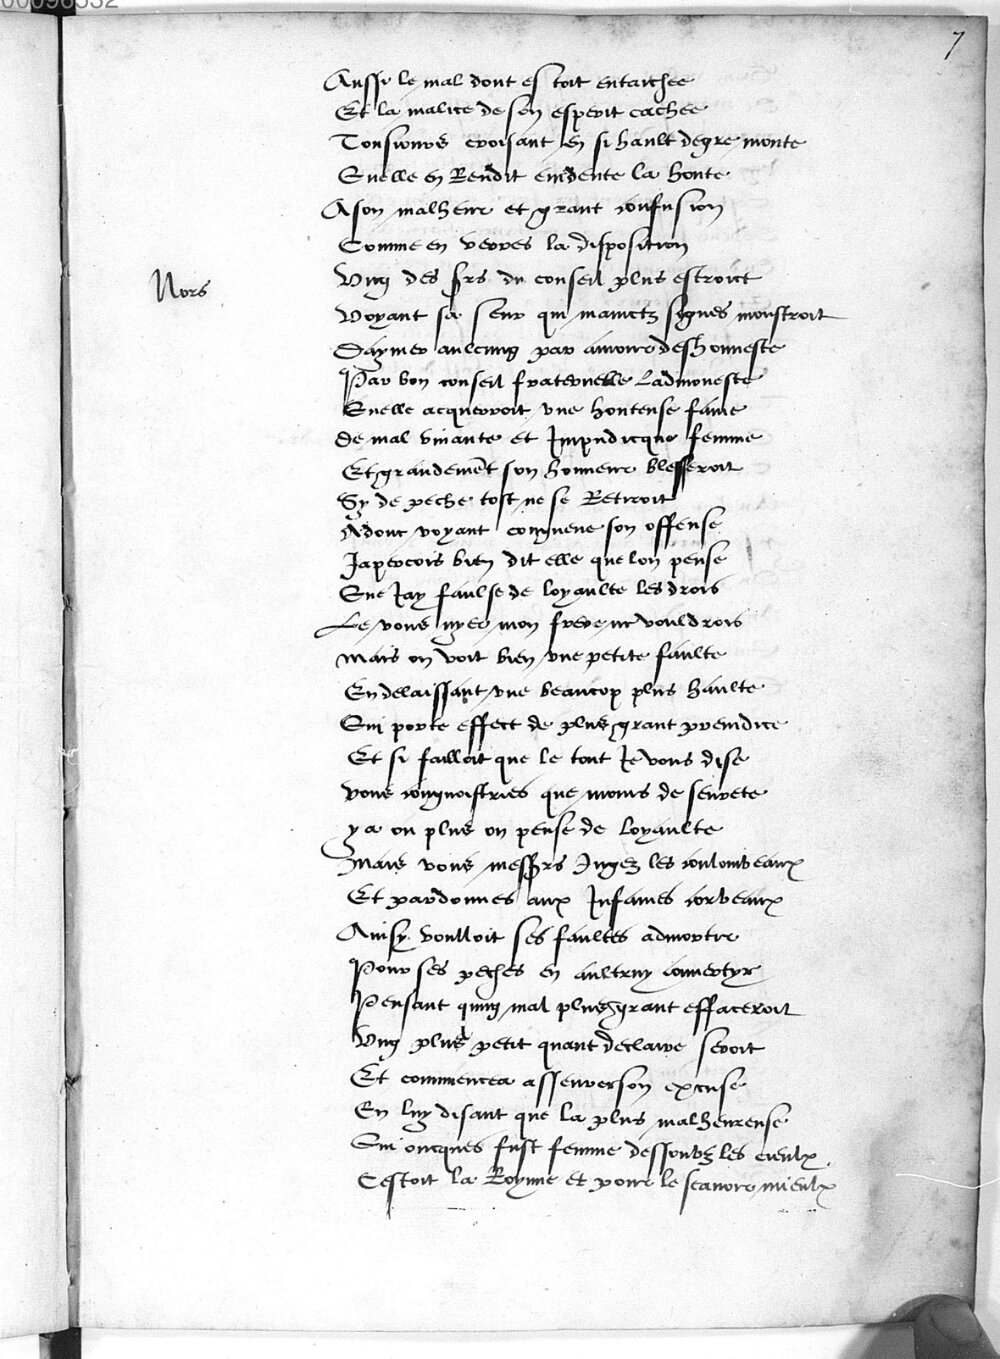 00096332
7
Aussi le mal dont estoit entaichee
Et la malice de son esperit cachee
Tousiours croisant en si hault degre monte
Quelle en Rendit euidente la honte
A son malheur et grant confusion
Comme en verres la disposition
Nors
Vng des srs du conseil plus estroict
Voyant sa seur qui mainctz signes monstroit
Daymer aulcung par amour deshonneste
Par bon conseil fraternelle Ladmoneste
Quelle acquerroit vne honteuse fame
De mal viuante et Impudicque femme
Et grandemēt son honneur blesseroit
Sy de peche tost ne se Retiroit
Adonc voyant congneue son offense
Japercois bien dit elle que lon pense
Que Jay faulse de loyaulte les drois
Le vous nyer mon frere ne vouldrois
Mais on voit bien vne petite faulte
En delaissant vne beaucop plus haulte
Qui porte effect de plus grant preiudice
Et si failloit que le tout Je vous dise
Vous congnoistries que moins de seurete
y a ou plus on pense de loyaulte
Mais vous messrs Jugez les coulombeaux
Et pardonnes aux Infames corbeaux
Ainsy voulloit ses faultes admortir
Pour ses peches en aultruy conuertyr
Pensant quung mal plus grant effaceroit
Vng plus petit quant declaire seroit
Et commencea asseurer son excuse
En luy disant que la plus malheureuse
Qui oncques fust femme dessoubz les cieulx
Cestoit la Royne et pour le scauoir mieulx